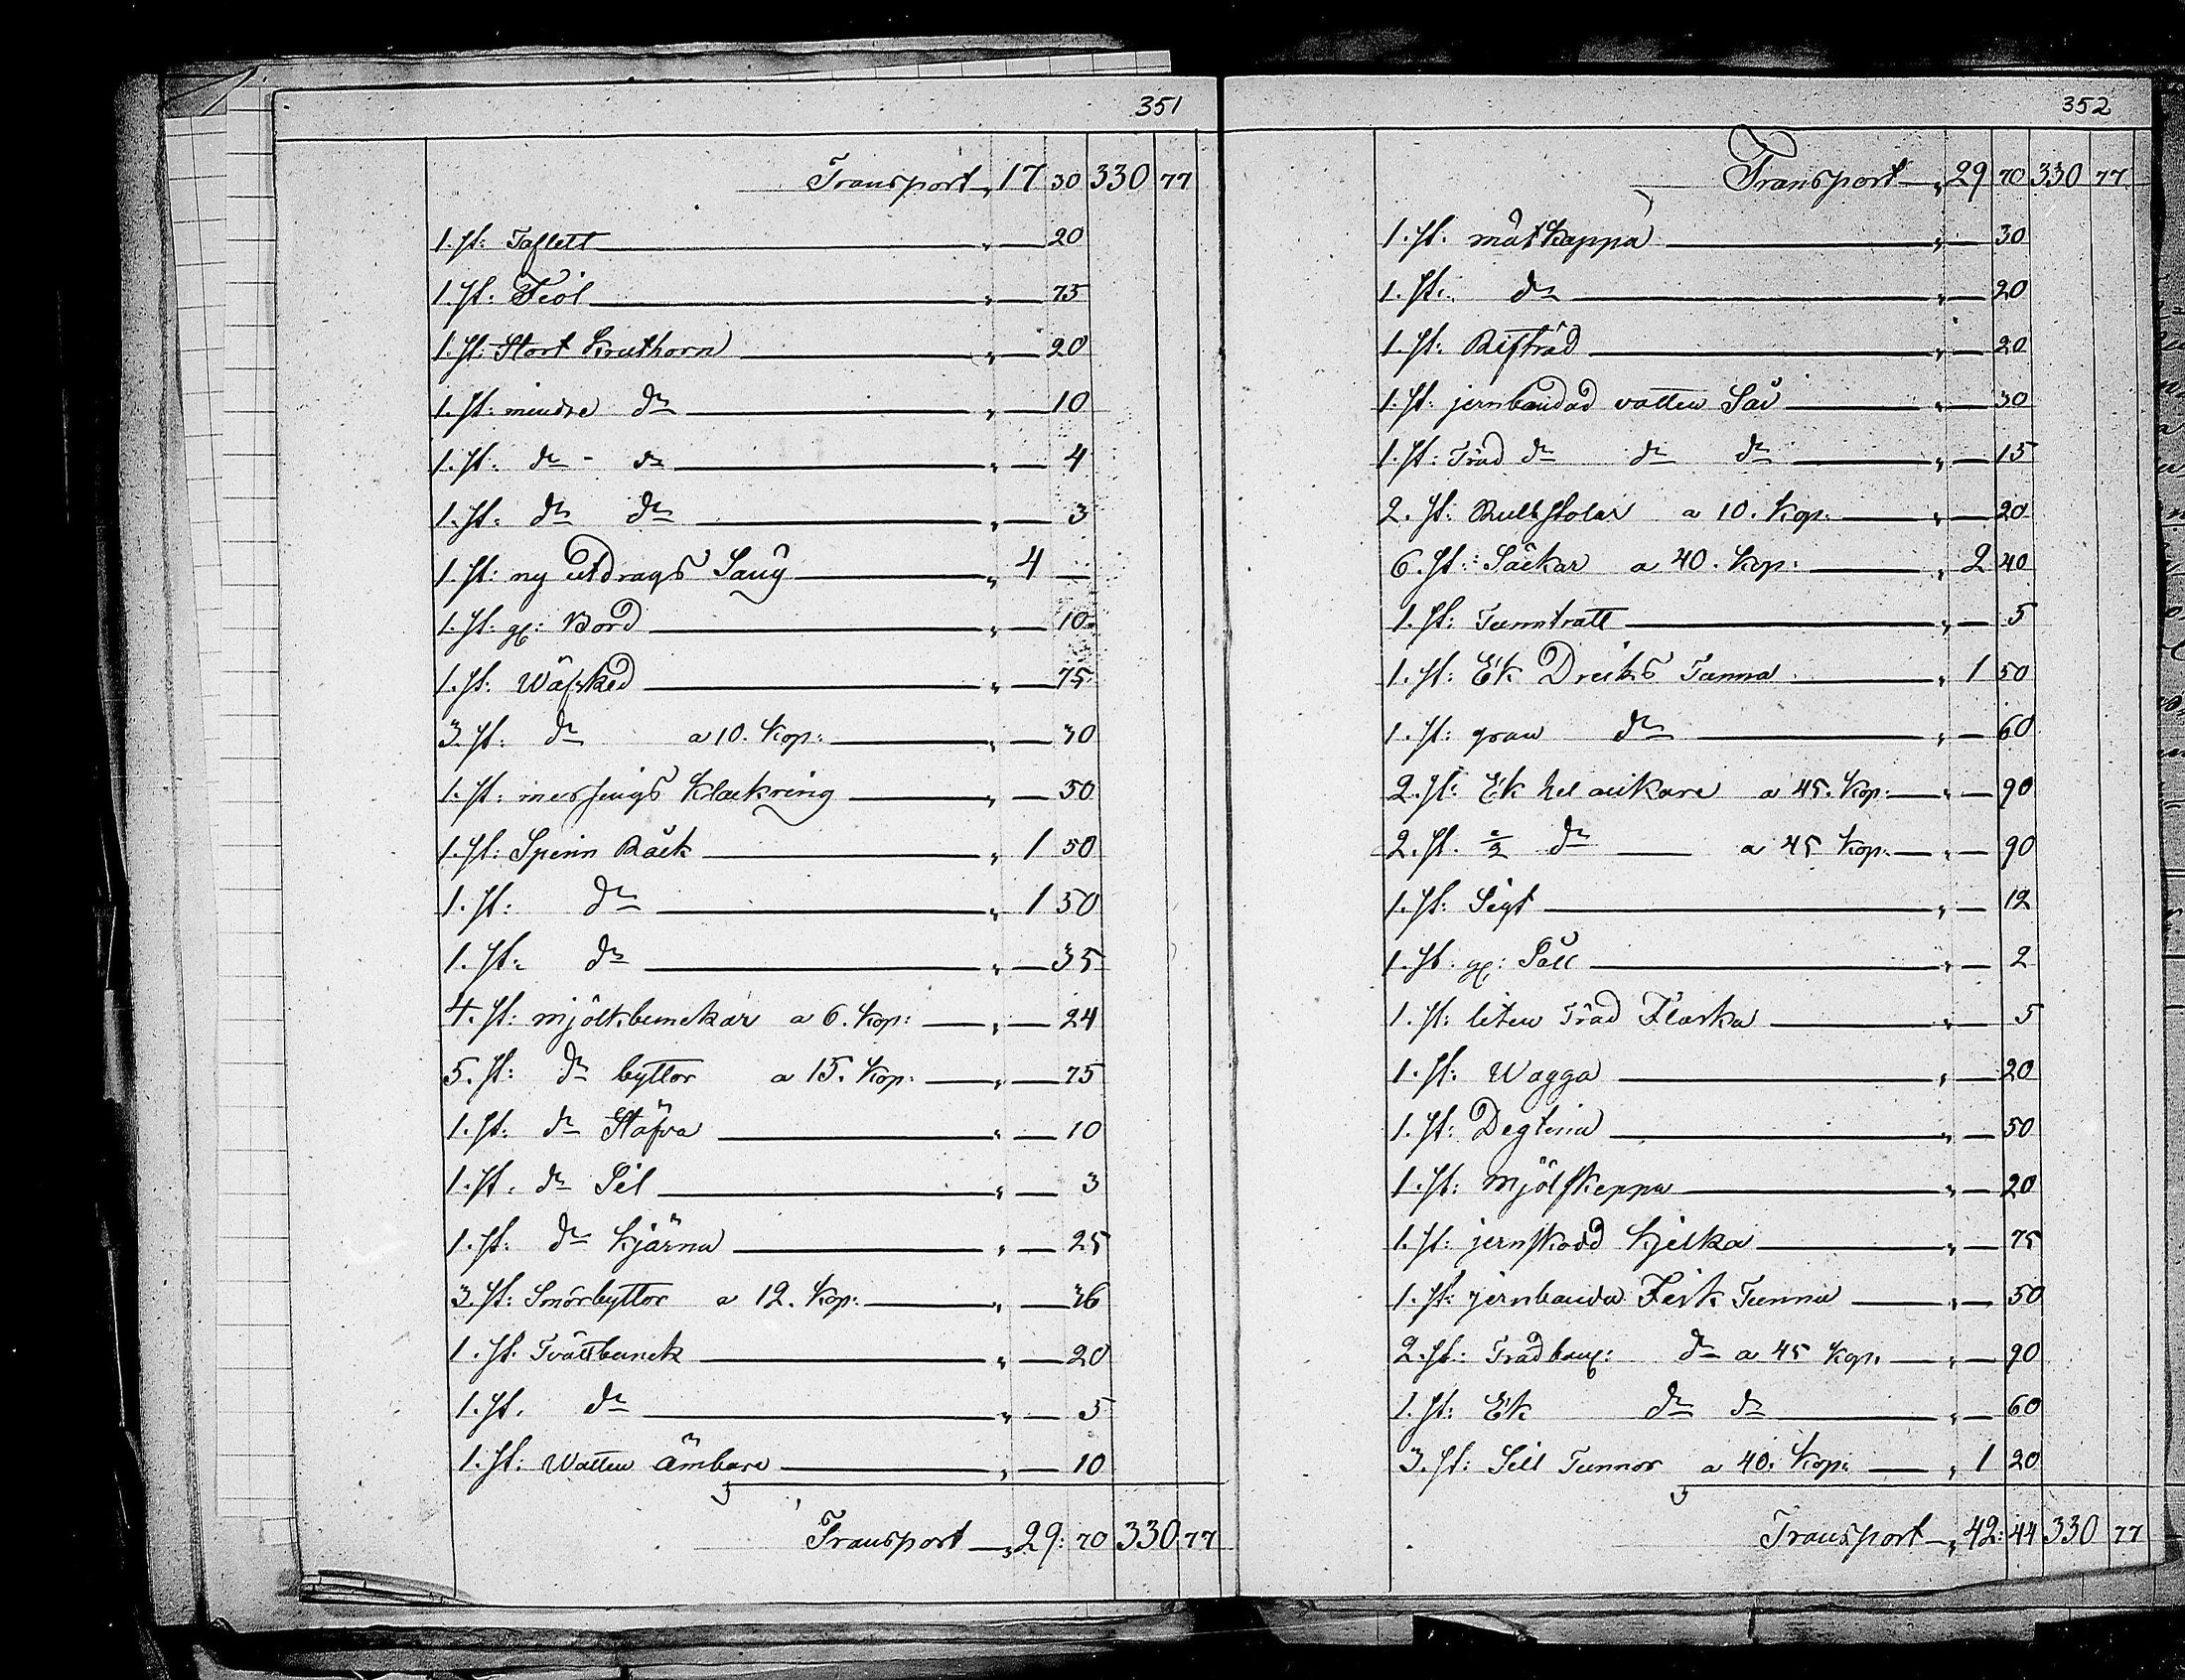 351
Transport „ 17 30 330 77
1. st: Taflett „ — 20
1. st: Fiol „ — 75
1. st: Stort Kruthorn „ — 20
1. st: mindre do „ — 10
1. st: do - do „ — 4
1. st: do do „ — 3
1. st: ny utdrags Säng „ 4 —
1. st: gl: Bord „ — 10
1. st: Wäfsked „ — 75
3. st: do a 10. Kop: „ — 30
1. st: messings Klackring „ — 50
1. st: Spinn Råck „ 1 50
1. st: do „ 1 50
1. st: do „ — 35
4. st: mjölkbunckar a 6. Kop: „ — 24
5. st: do byttor a 15. Kop: „ — 75
1. st: do Stäfva „ — 10
1. st: do Sil „ — 3
1. st: do Kjärna „ — 25
3. st: Smörbyttor a 12. Kop: „ — 36
1. st: Tvättbunck „ — 20
1. st. do „ — 5
1. st: Watten Ämbare „ — 10
Transport „ 29: 70 330 77
352
Transport „ 29 70 330 77
1. st. måtkappa „ — 30
1. st: do „ — 20
1. st: Bistråd „ — 20
1. st: jernbandad vatten Så „ — 30
1. st: Träd do do do „ — 15
2. st: Rullstolar a 10. Kop: „ — 20
6. st: Säckar a 40. Kop: „ 2 40
1. st: Tunntratt „ — 5
1. st: Ek Dricks Tunna „ 1 50
1. st: gran do „ — 60
2. st: Ek hel ankare a 45. Kop: „ — 90
2. st. ½ do a 45 Kop: „ — 90
1. st: Sigt „ — 12
1. st. gl: Såll „ — 2
1. st: liten Träd Flaska „ — 5
1. st: Wagga „ — 20
1. st: Degtina „ — 50
1. st: Mjölskeppa „ — 20
1. st: jernskodd Kjelka „ — 75
1. st: jernbanda Fisk Tunna „ — 50
2. st: Trädban: do a 45 Kop. „ — 90
1. st: Ek do do „ — 60
3. st: Sill Tunnor a 40. Kop: „ 1 20
Transport „ 42: 44 330 77